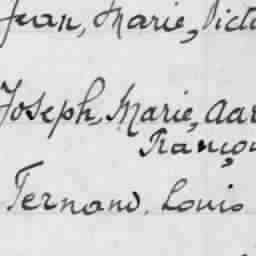 Jean, Marie, Victo
Joseph, Marie, Aar
Franço
Fernand, Louis